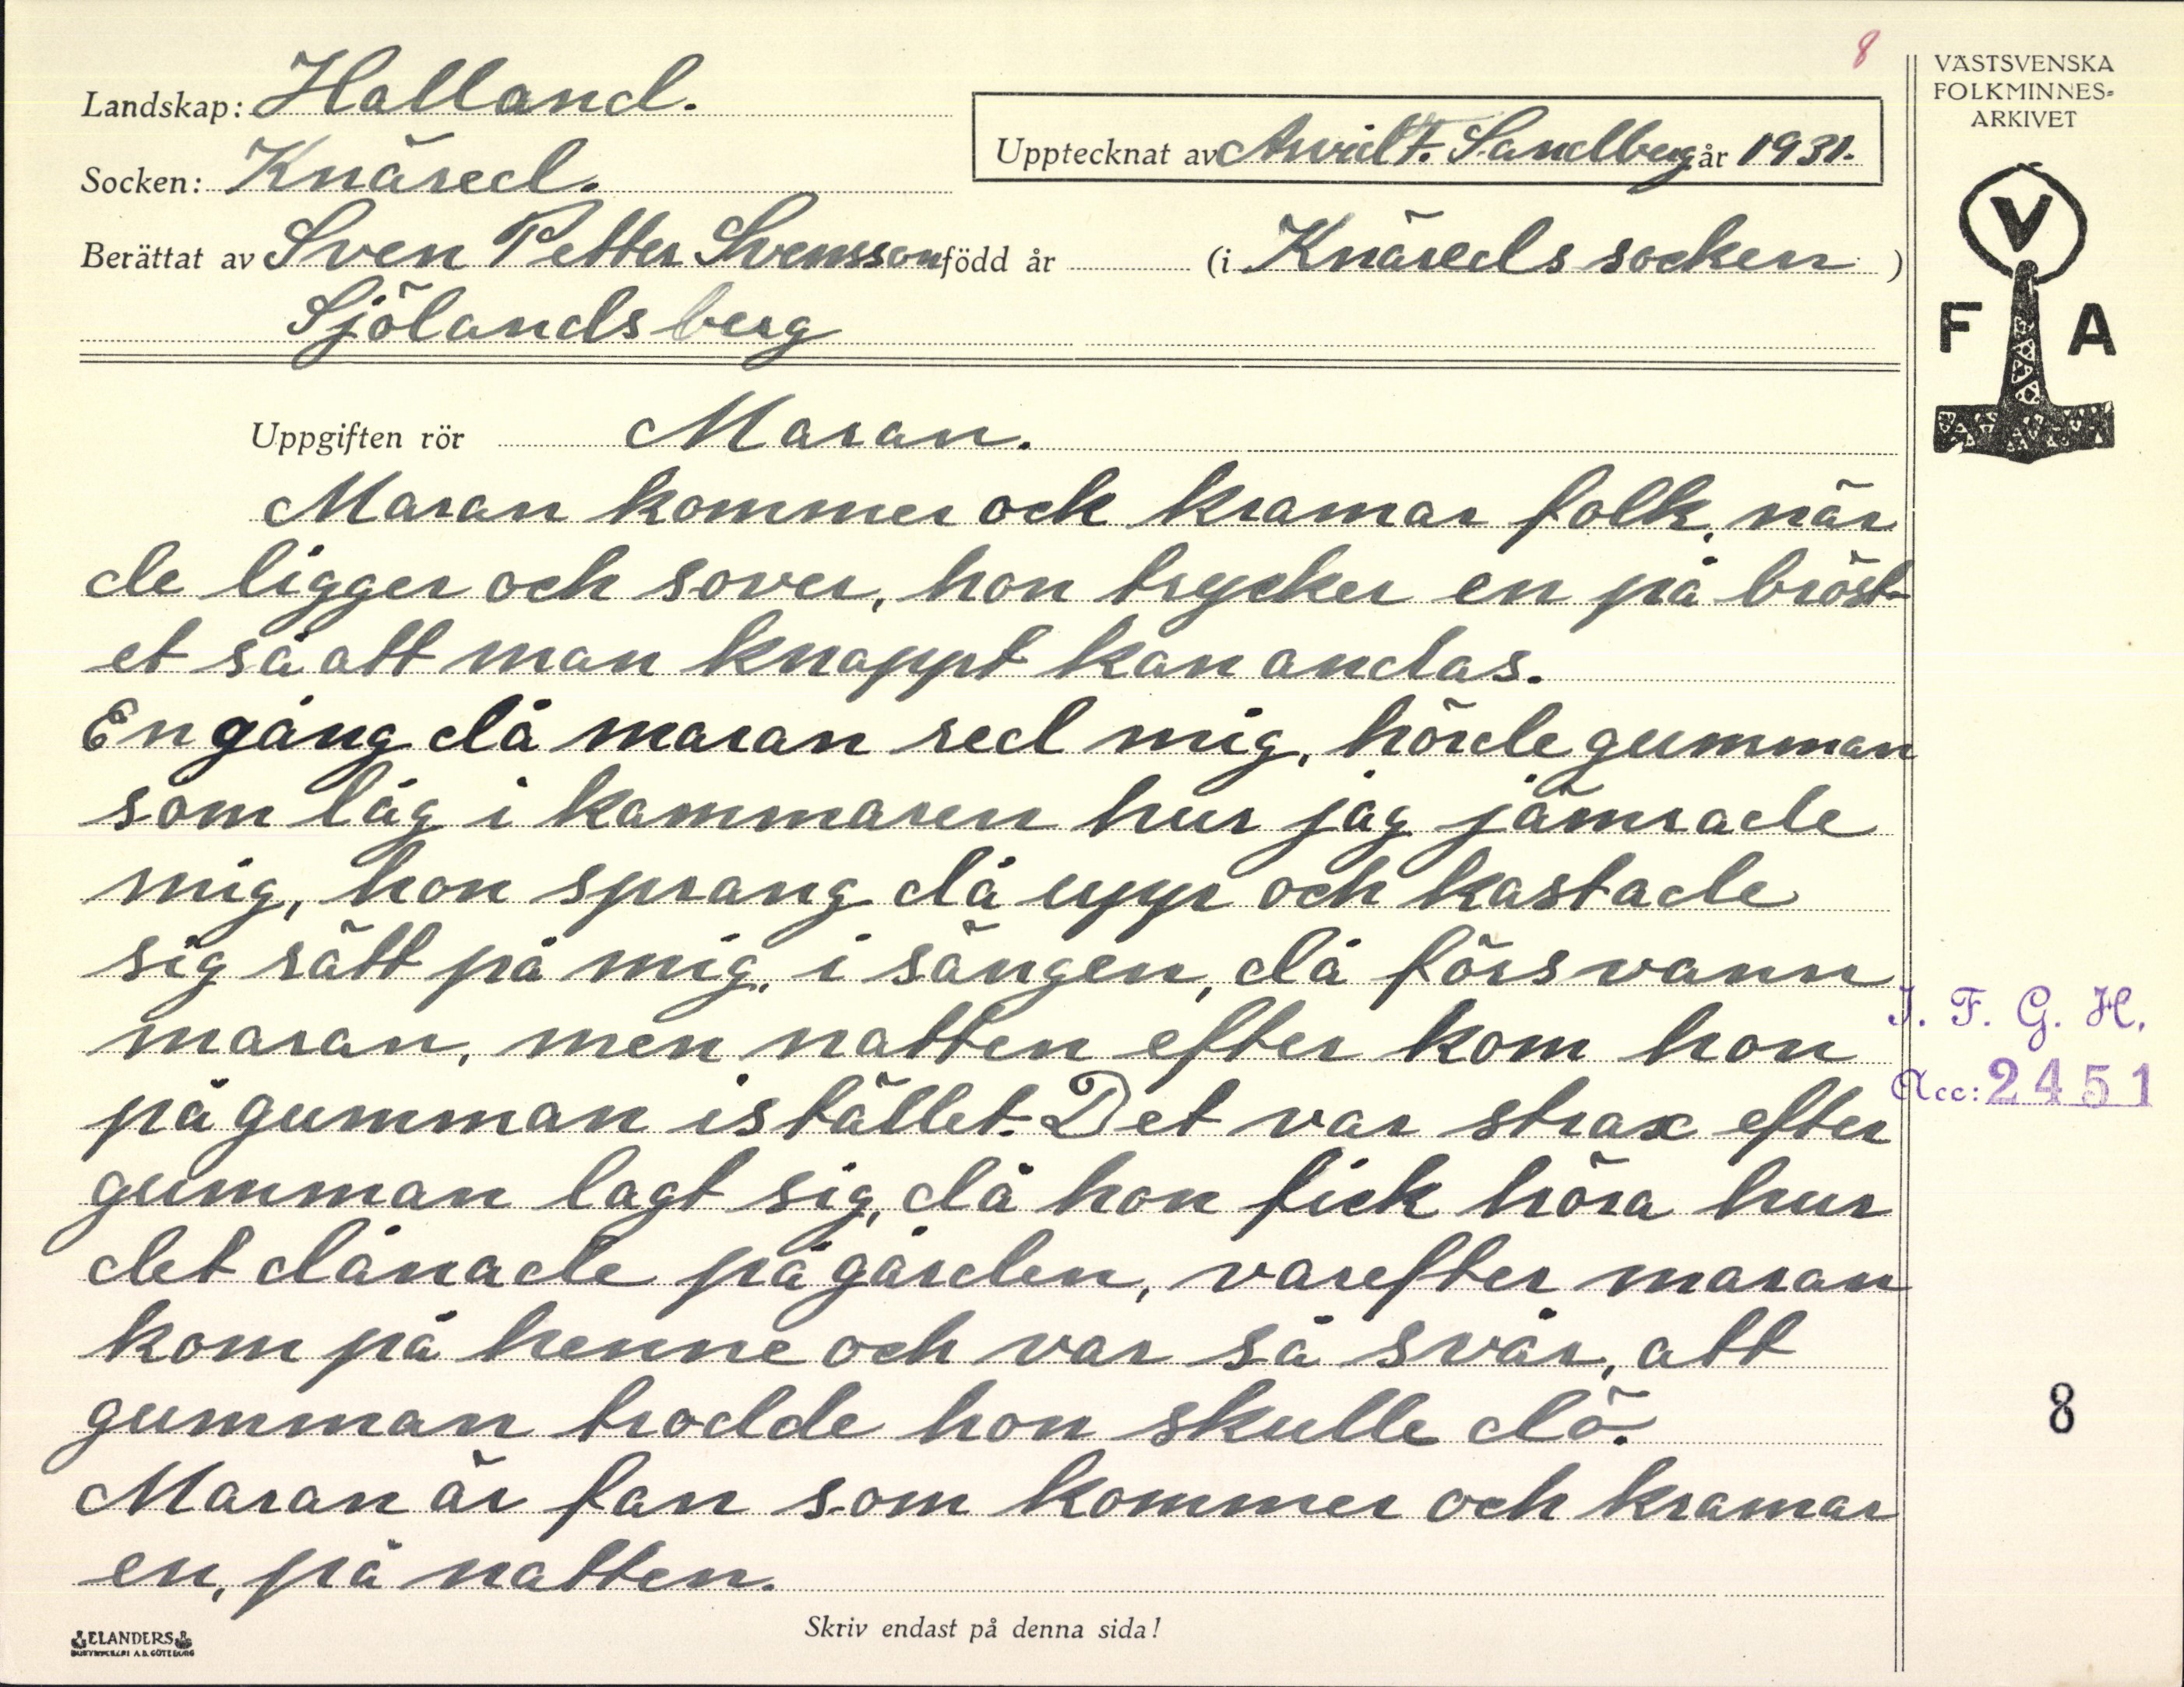 8
Landskap: Halland.
Socken: Knäred.
Upptecknat av Arvid F. Sandberg år 1931.
Berättat av Sven Petter Svensson född år (i Knäreds socken )
Sjölandsberg
Uppgiften rör Maran.
Maran kommer och kramar folk, när
de ligger och sover, hon trycker en på bröst-
et så att man knappt kan andas.
En gång då maran red mig, hörde gumman
som låg i kammaren hur jag jämrade
mig, hon sprang då upp och kastade
sig rätt på mig, i sängen, då försvann
maran, men natten efter kom hon
på gumman istället. Det var strax efter
gumman lagt sig, då hon fick höra hur
det dånade på gården, varefter maran
kom på henne och var så svår, att
gumman trodde hon skulle dö.
Maran är fan som kommer och kramar
en, på natten.
Skriv endast på denna sida!
ELANDERS
BOKTRYCKERI A.B. GÖTEBORG
VÄSTSVENSKA
FOLKMINNES-
ARKIVET
V
F A
I. F. G. H.
Acc: 2451
8